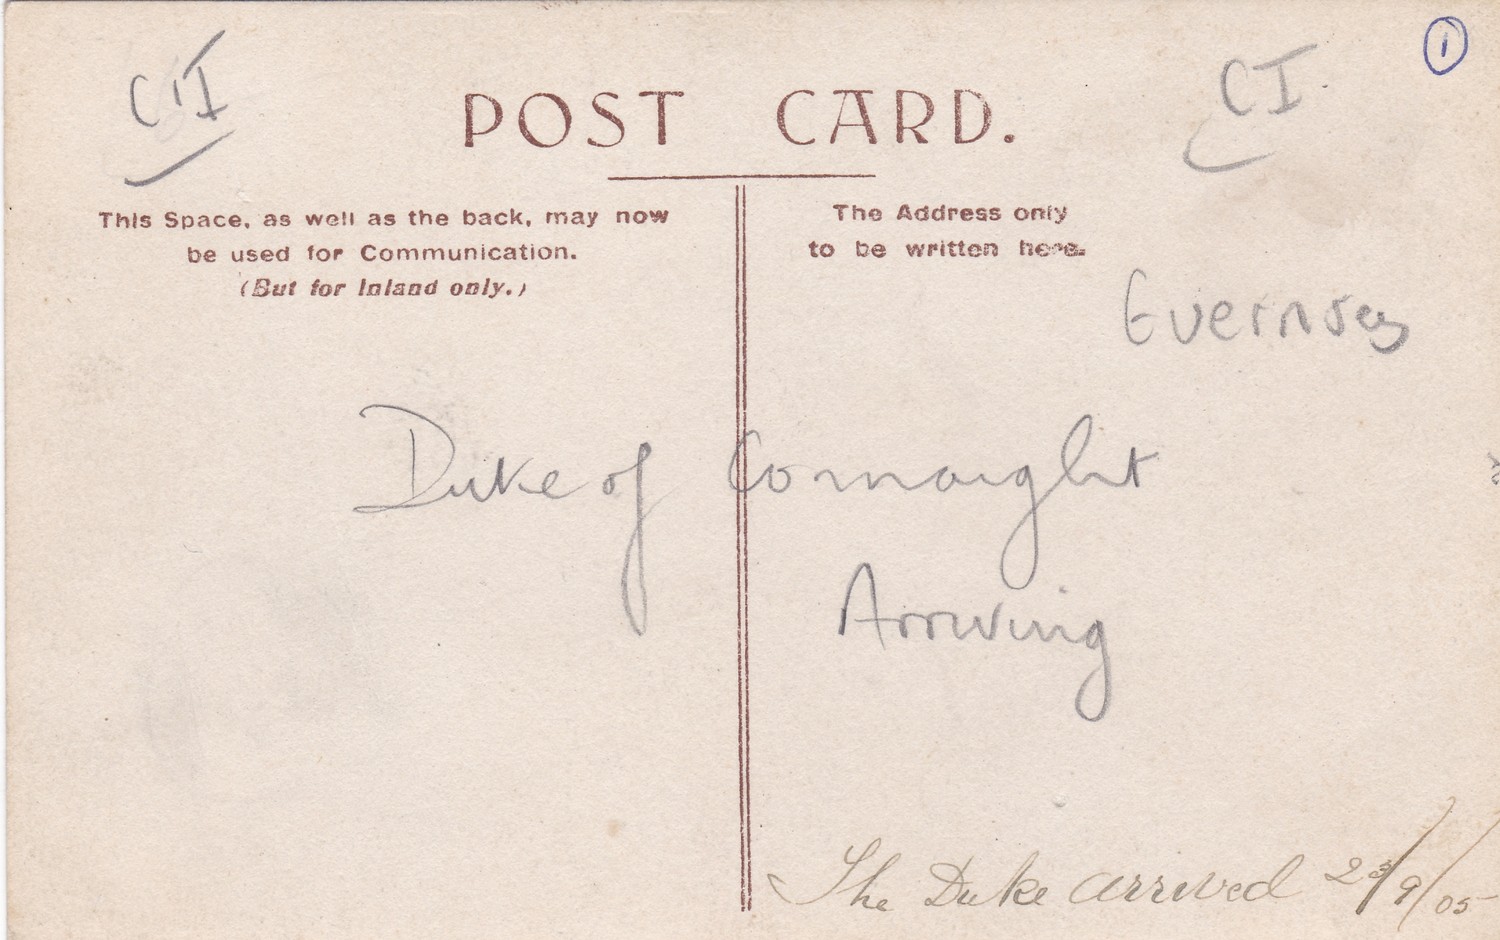 C.I
CI.
1
POST CARD.
This Space, as well as the back, may now
be used for Communication.
(But for Inland only.)
The Address only
to be written here.
Guernsey
Duke of Connaught
Arriving
The Duke arrived 23/9/05